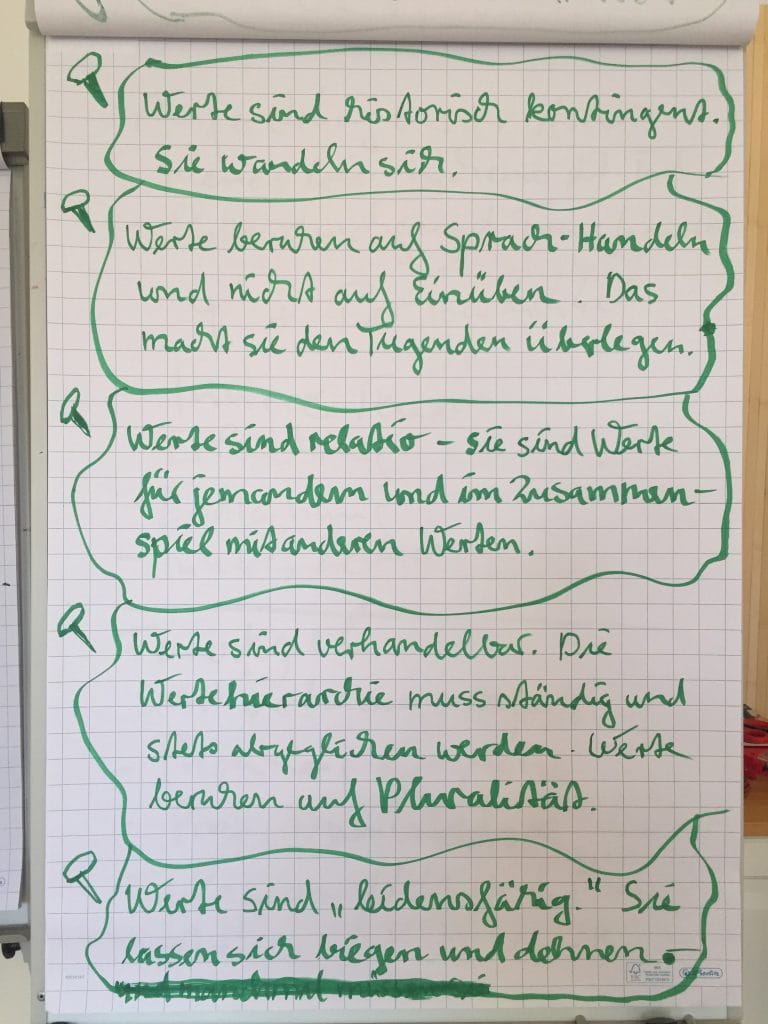 Werte sind historisch kontingent.
Sie wandeln sich.
Werte beruhen auf Sprach-Handeln
und nicht auf Einüben. Das
macht sie den Tugenden überlegen.
Werte sind relativ – sie sind Werte
für jemandem und im Zusammen-
spiel mit anderen Werten.
Werte sind verhandelbar. Die
Wertehierarchie muss ständig und
stets abgeglichen werden. Werte
beruhen auf Pluralität.
Werte sind „leidensfähig.“ Sie
lassen sich biegen und dehnen.–